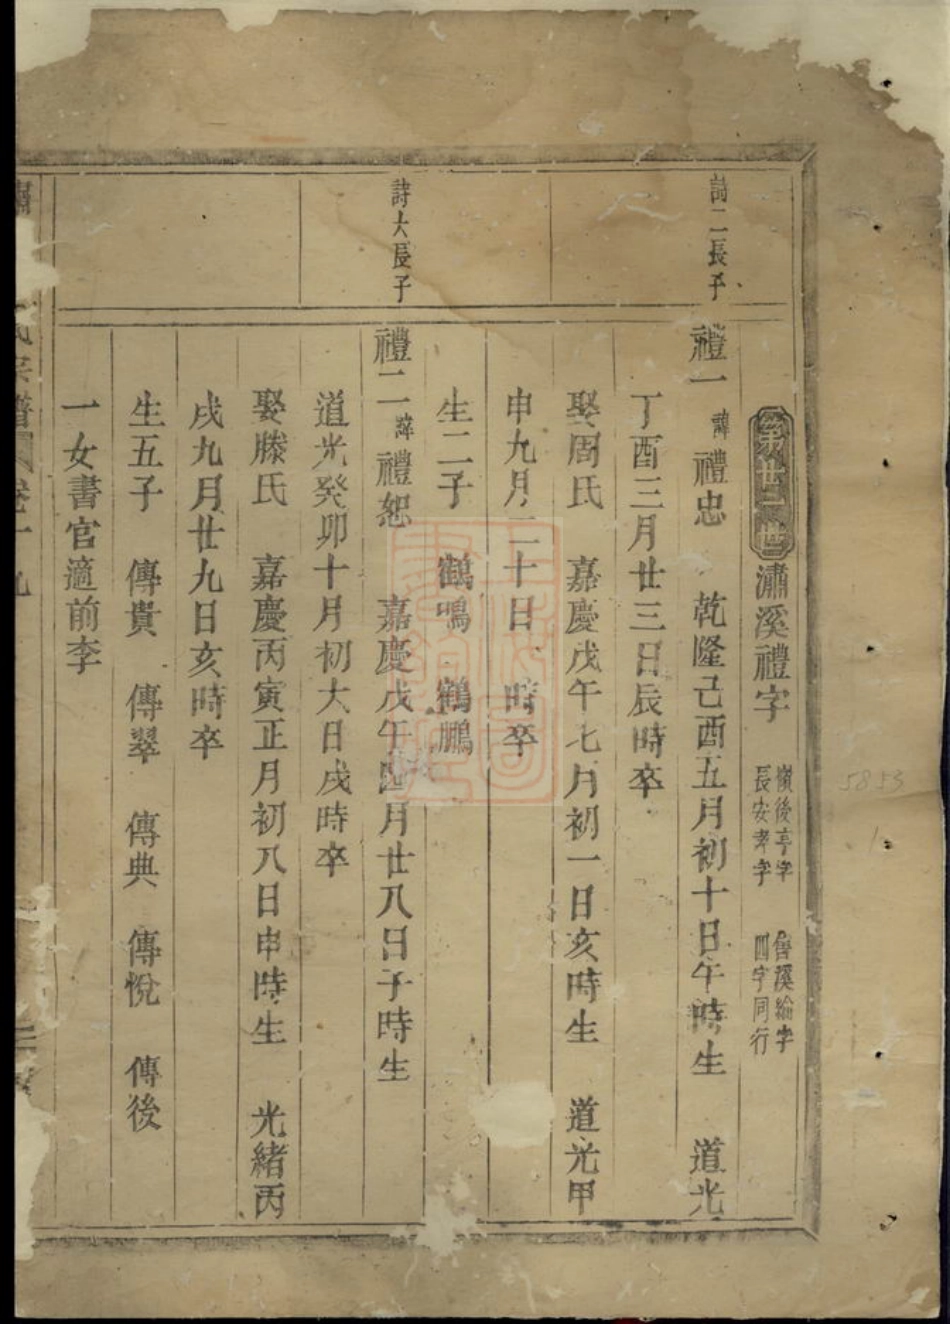 第廿二世瀟溪禮字 嶺後亨字 長安孝字 魯溪綸字 四字同行
詩二長子
禮一 諱禮忠 乾隆己酉五月初十日午時生 道光
丁酉三月廿三日辰時卒
娶周氏 嘉慶戊午七月初一日亥時生 道光甲
申九月二十日 時卒
生二子 鶴鳴 鶴鵬
詩大長子
禮二 諱禮恕 嘉慶戊午四月廿八日子時生
道光癸卯十月初六日戌時卒
娶滕氏 嘉慶丙寅正月初八日申時生 光緒丙
戌九月廿九日亥時卒
生五子 傳貴 傳翠 傳典 傳悅 傳後
一女書官適前李
氏宗譜 卷十九
5853